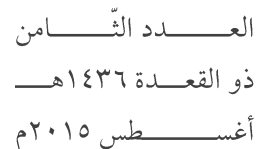 العـــــــدد الثّـــــــامن
ذو القعـــدة ١٤٣٦هـــ
أغســـــــــطس ٢٠١٥م